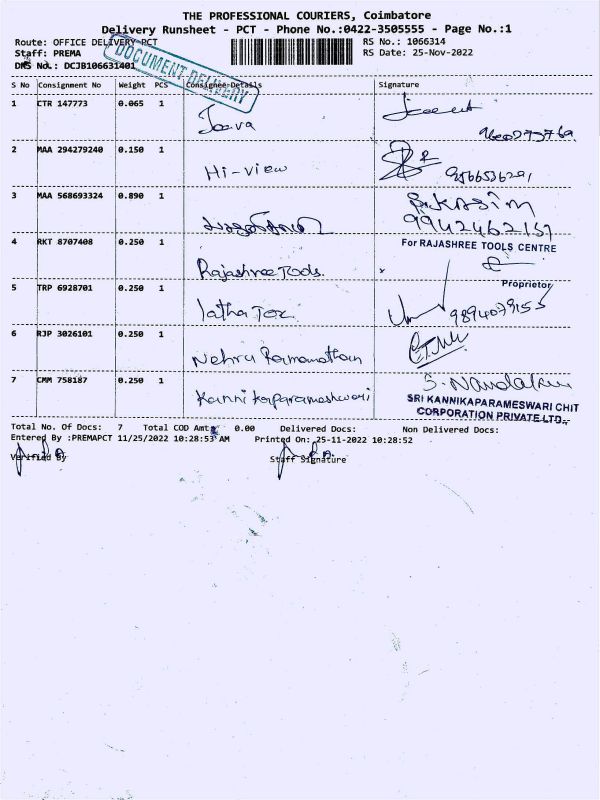 THE PROFESSIONAL COURIERS, Coimbatore
Delivery Runsheet - PCT - Phone No.:0422-3505555 - Page No.:1
Route: OFFICE DELIVERY-PCT
RS No.: 1066314
Staff: PREMA
RS Date: 25-Nov-2022
DRS No.: DCJB106631401
DOCUMENT DELIVERY
S No Consignment No Weight PCS Consignee-Details Signature
1 CTR 147773 0.065 1
2 MAA 294279240 0.150 1 Hi-view
3 MAA 568693324 0.890 1
9942462157
For RAJASHREE TOOLS CENTRE
4 RKT 8707408 0.250 1 Rajashree Tools.
Proprietor
5 TRP 6928701 0.250 1 latha Tex
6 RJP 3026101 0.250 1 Nehru Ramanathan
7 CMM 758187 0.250 1 Kanni kaparameshwari
SRI KANNIKAPARAMESWARI CHIT
CORPORATION PRIVATE LTD.,
Total No. Of Docs: 7 Total COD Amt: 0.00 Delivered Docs: Non Delivered Docs:
Entered By :PREMAPCT 11/25/2022 10:28:53 AM Printed On: 25-11-2022 10:28:52
Verified By Staff Signature